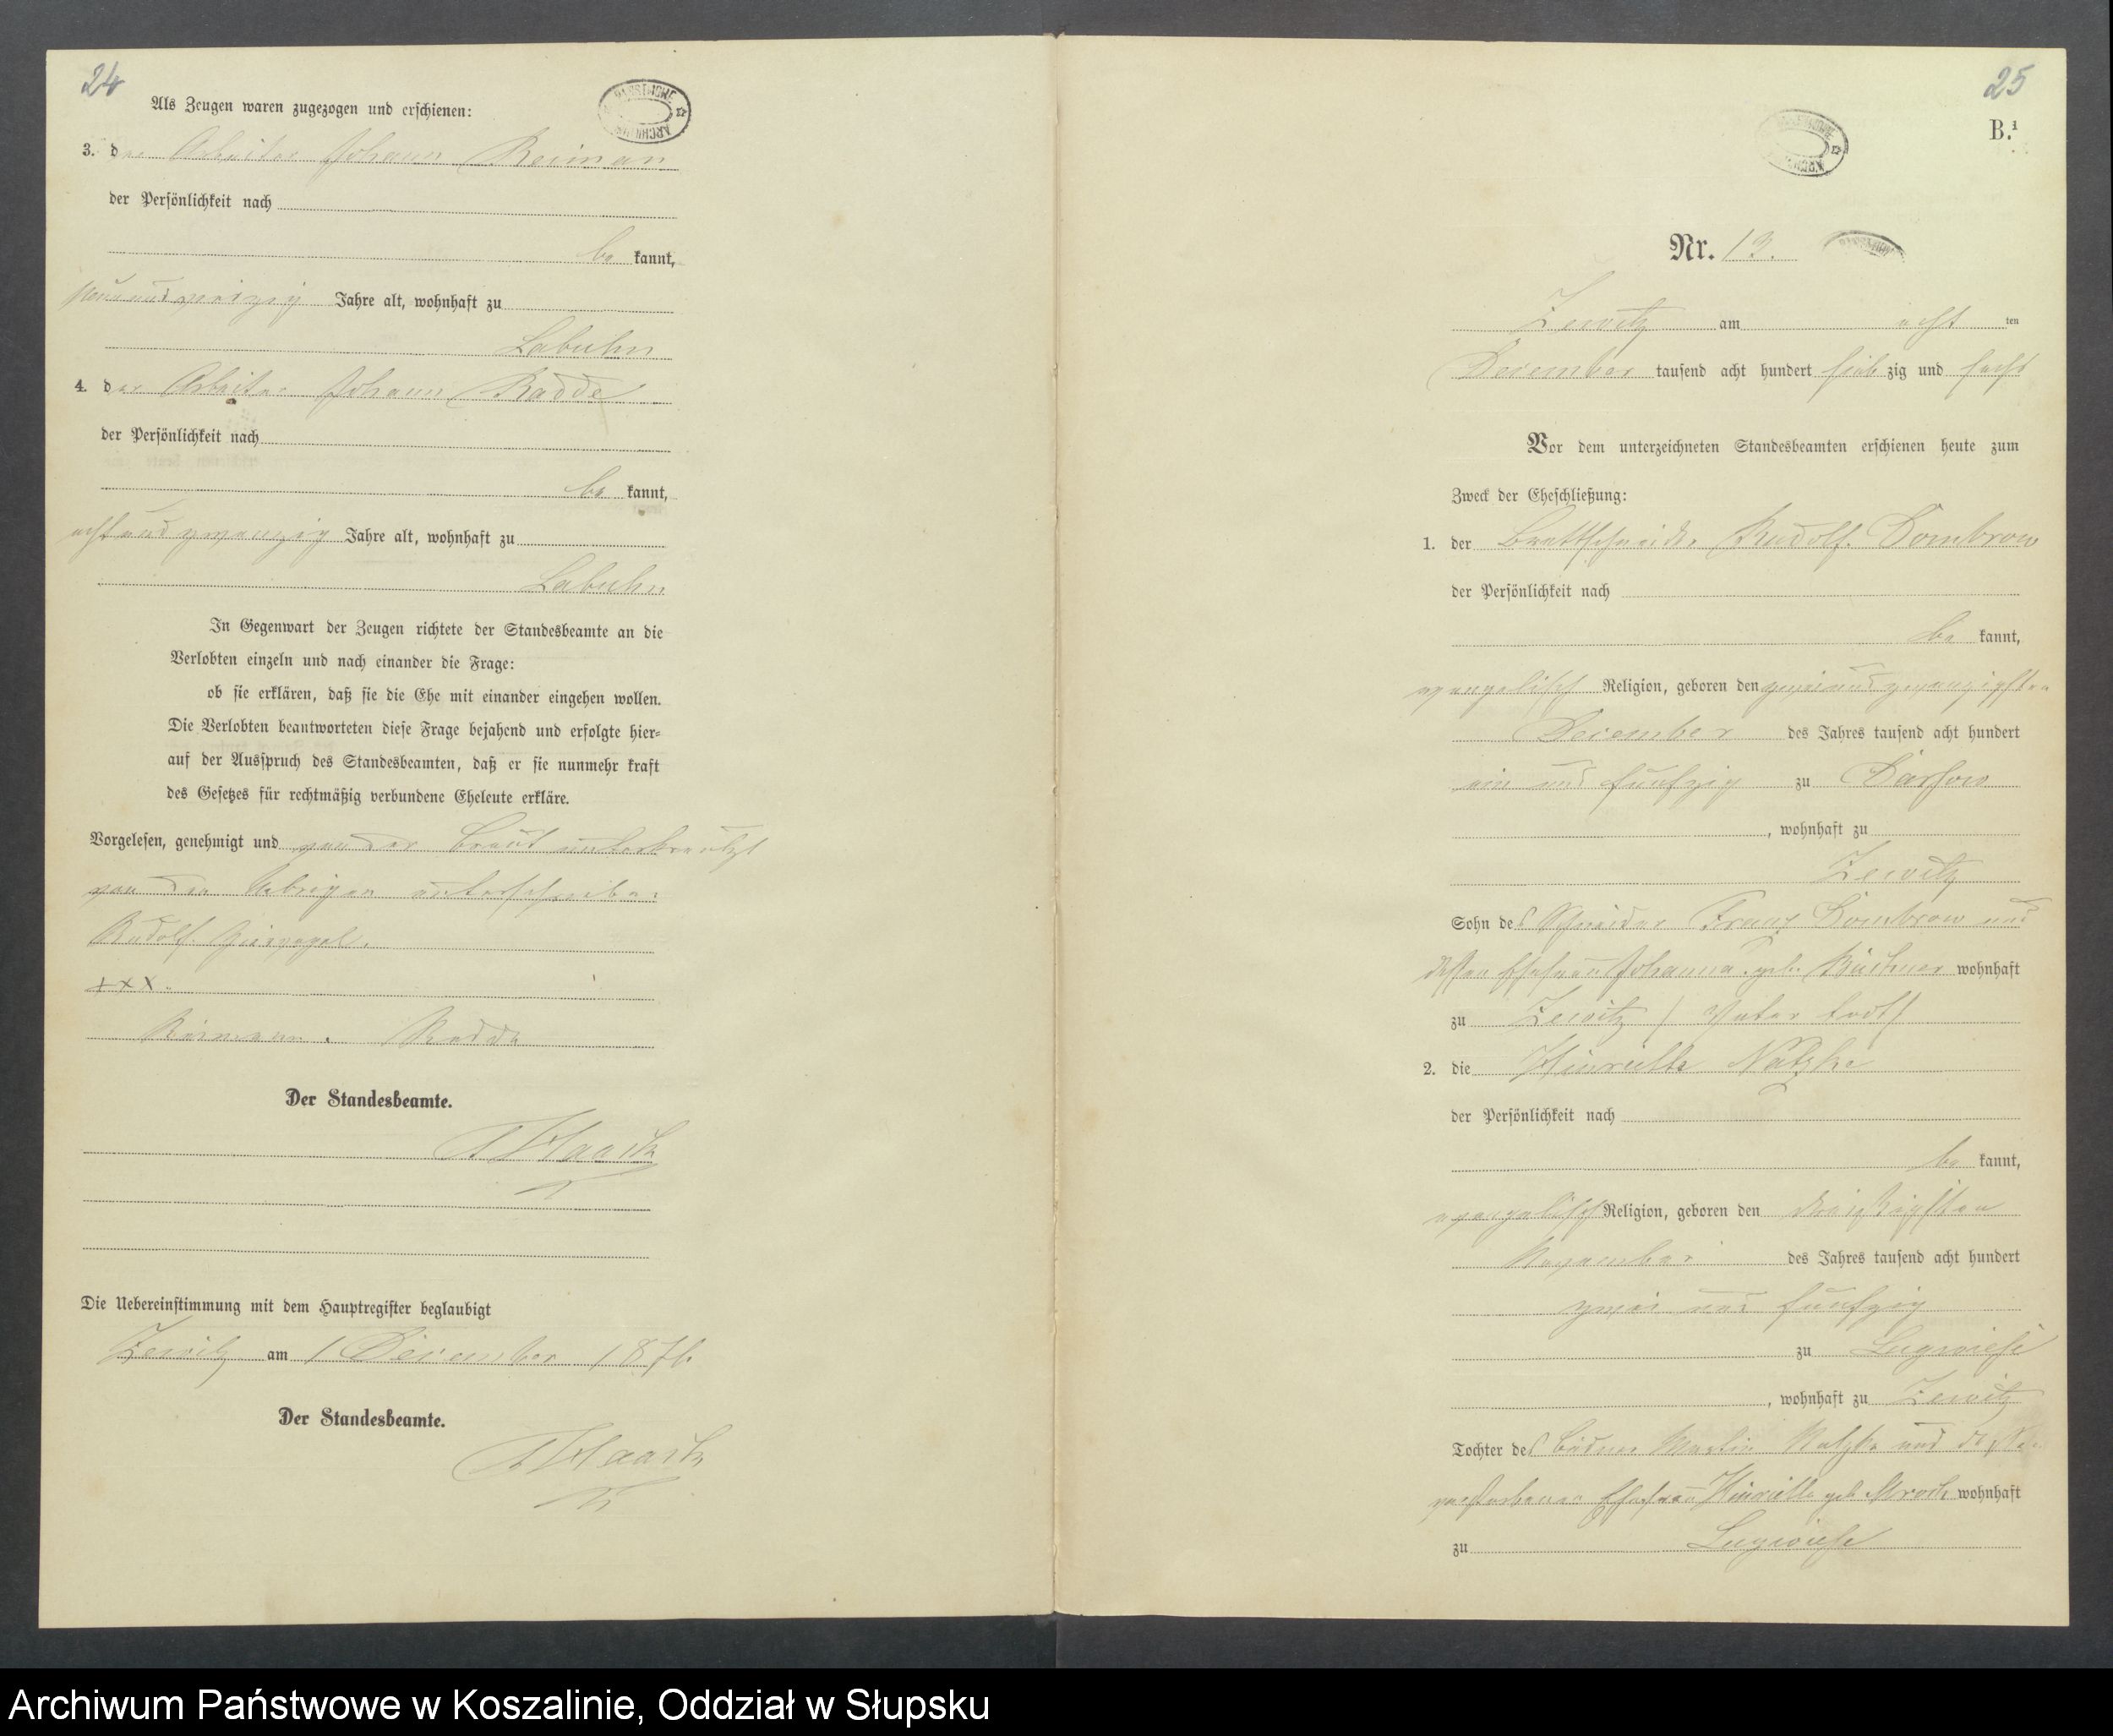 24
Als Zeugen waren zugezogen und erschienen:
3. der Arbeiter Johann Reiman
der Persönlichkeit nach
be kannt,
neunundvierzig Jahre alt, wohnhaft zu
Labuhn
4. der Arbeiter Johann Radde
der Persönlichkeit nach
be kannt,
achtundzwanzig Jahre alt, wohnhaft zu
Labuhn
In Gegenwart der Zeugen richtete der Standesbeamte an die
Verlobten einzeln und nach einander die Frage:
ob sie erklären, daß sie die Ehe mit einander eingehen wollen.
Die Verlobten beantworteten diese Frage bejahend und erfolgte hier-
auf der Ausspruch des Standesbeamten, daß er sie nunmehr kraft
des Gesetzes für rechtmäßig verbundene Eheleute erkläre.
Vorgelesen, genehmigt und von der Braut unterkreutzt
von den Uebrigen unterschrieben
Rudolf
+ X X.
Reimann. Radde
Der Standesbeamte.
Die Uebereinstimmung mit dem Hauptregister beglaubigt
Zewitz am 1 December 1876
Der Standesbeamte.
25
B.¹
Nr. 13.
Zewitz am acht ten
December tausend acht hundert sieb zig und sechs
Vor dem unterzeichneten Standesbeamten erschienen heute zum
Zweck der Eheschließung:
1. der Brettschneider Rudolf Dombrow
der Persönlichkeit nach
be kannt,
evangelisch Religion, geboren den zweiundzwanzigsten
December des Jahres tausend acht hundert
ein und funfzig zu Darsow
, wohnhaft zu
Zewitz
Sohn des Schneider Franz Dombrow und
dessen Ehefrau Johanna geb. Büchner wohnhaft
zu Zewitz / Vater todt /
2. die Hinriette Natzke
der Persönlichkeit nach
be kannt,
evangelisch Religion, geboren den dreißigsten
November des Jahres tausend acht hundert
zwei und funfzig
zu Lugwiese
, wohnhaft zu Zewitz
Tochter des Büdner Martin Natzke und dessen
verstorbener Ehefrau Hinriette geb. wohnhaft
zu Lugwiese
Archiwum Państwowe w Koszalinie, Oddział w Słupsku